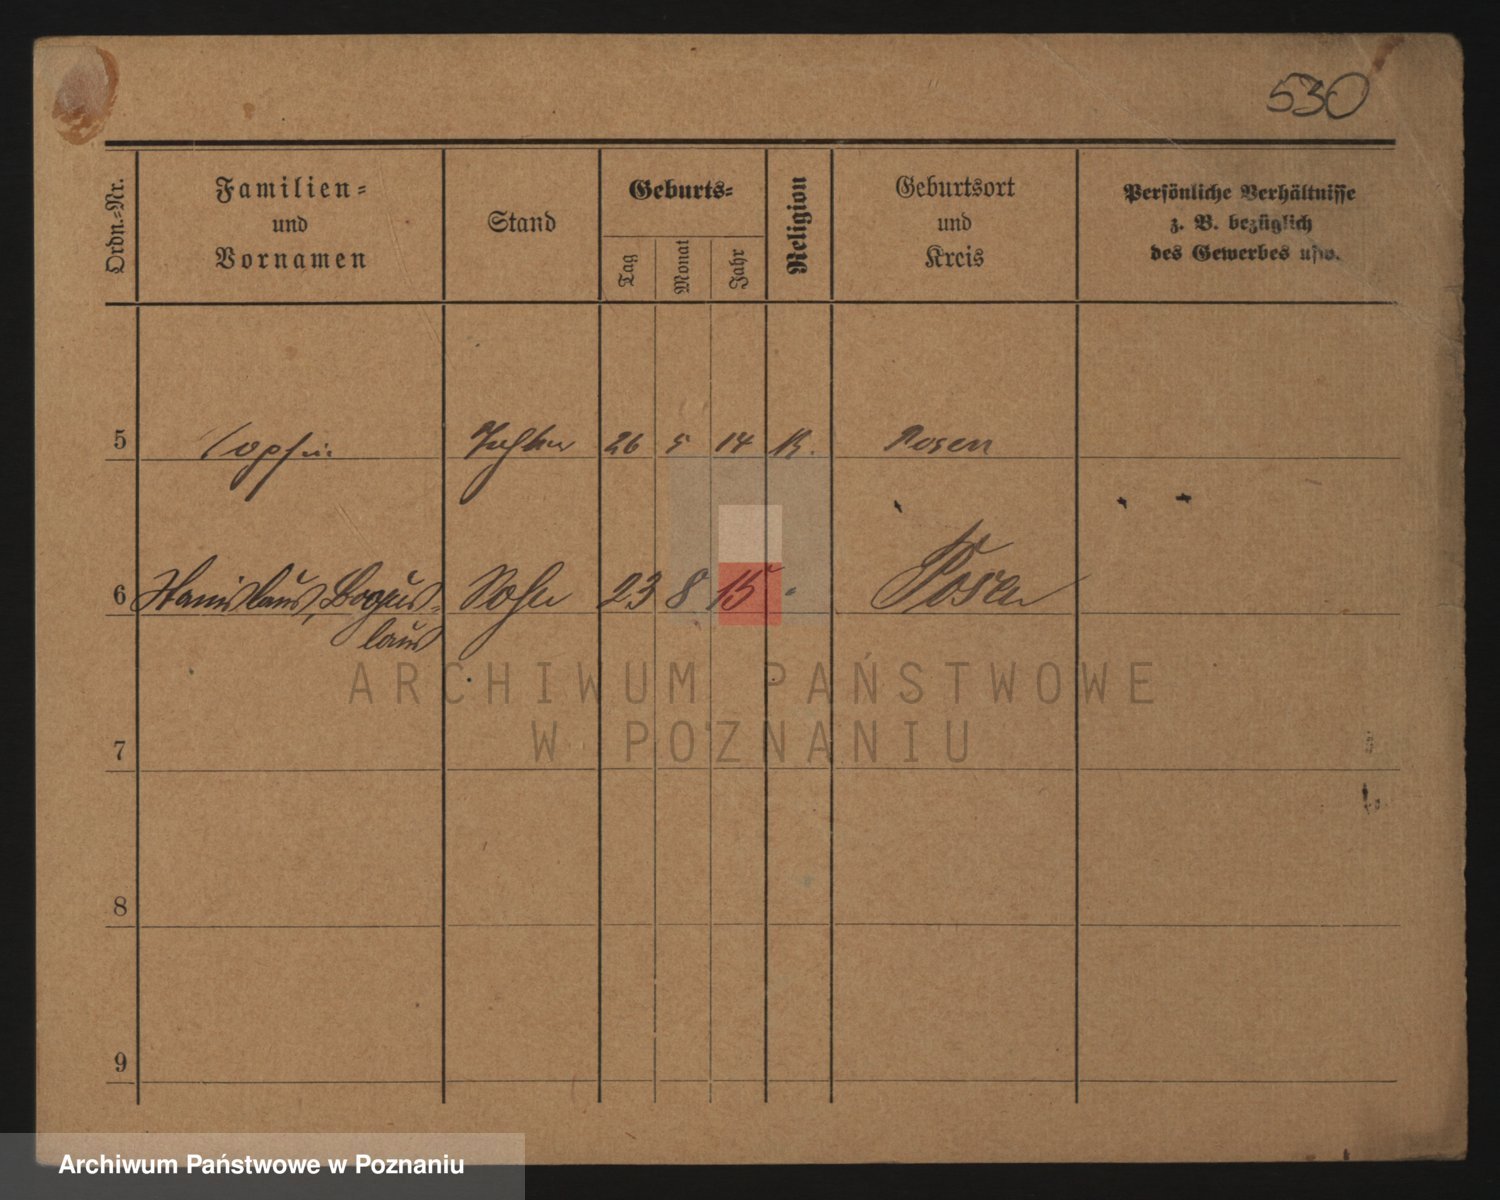 530
Ordn.=Nr.
Familien=
und
Vornamen
Stand
Geburts=
Tag
Monat
Jahr
Religion
Geburtsort
und
Kreis
Persönliche Verhältnisse
z. B. bezüglich
des Gewerbes usw.
5 Sophie Tochter 26 5 14 K. Posen
6 Stanislaus, Bogus= Sohn 23 8 15 " Posen
laus
7
8
9
ARCHIWUM PAŃSTWOWE
W POZNANIU
Archiwum Państwowe w Poznaniu